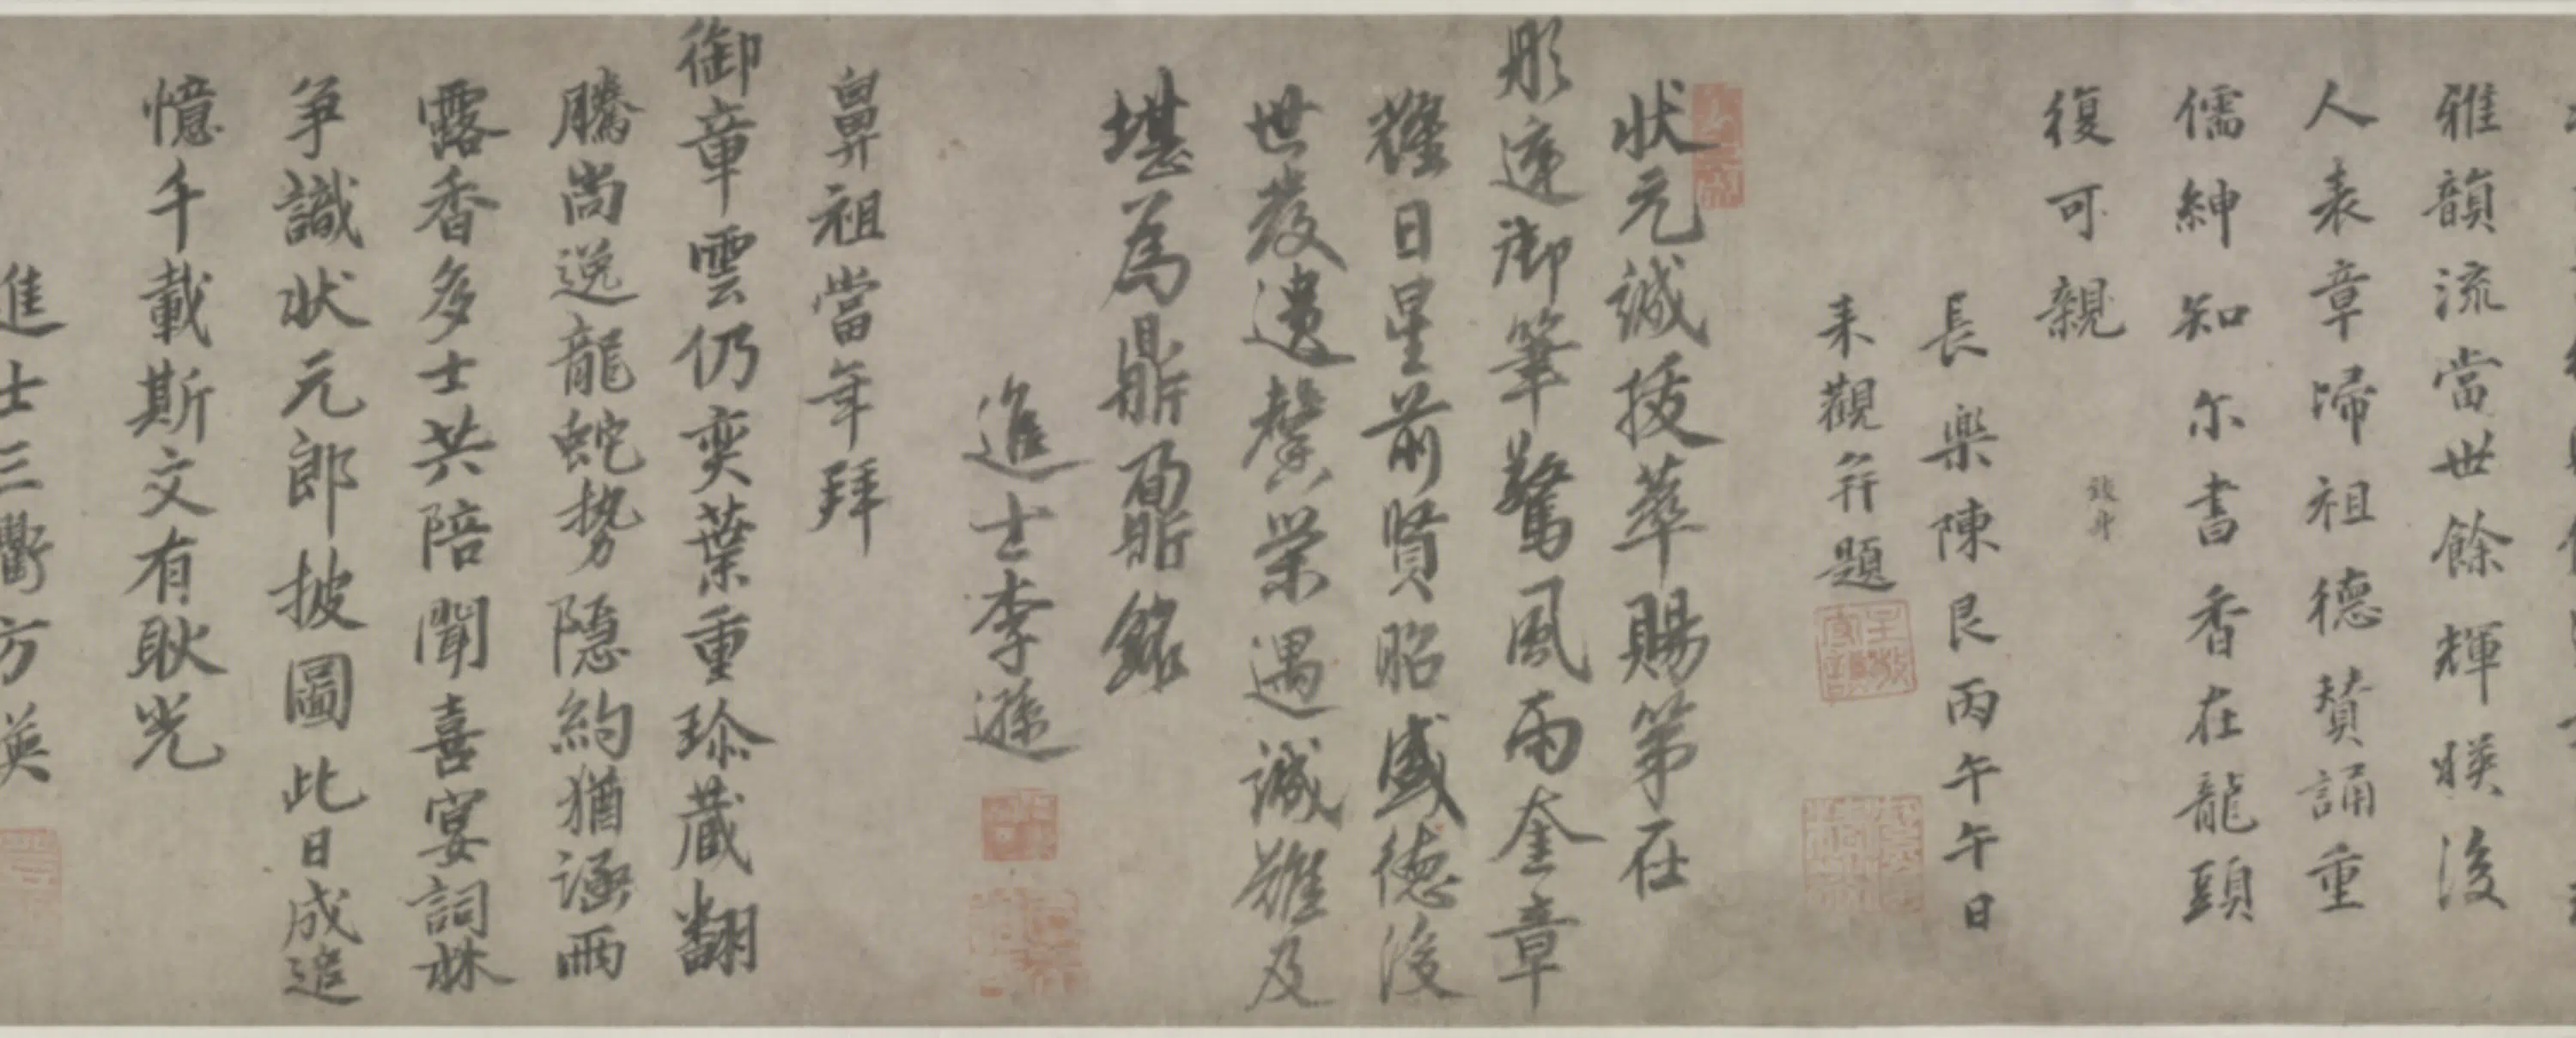 雅韻流當世餘輝暎後
人表章歸祖德賛誦重
儒紳知尔書香在龍頭
復可親
後身
長樂陳艮丙午午日
来觀并題
狀元誠拔萃賜第在
彤達御筆驚風雨奎章
耀日星前賢昭盛德後
世發遺馨榮遇誠難及
堪為鼎鼐銘
進士李遜
鼻祖當年拜
御章雲仍奕葉重珍藏翻
騰尚逸龍蛇勢隱約猶涵雨
露香多士共陪聞喜宴詞林
爭識狀元郎披圖此日成追
憶千載斯文有耿光
進士三衢方英